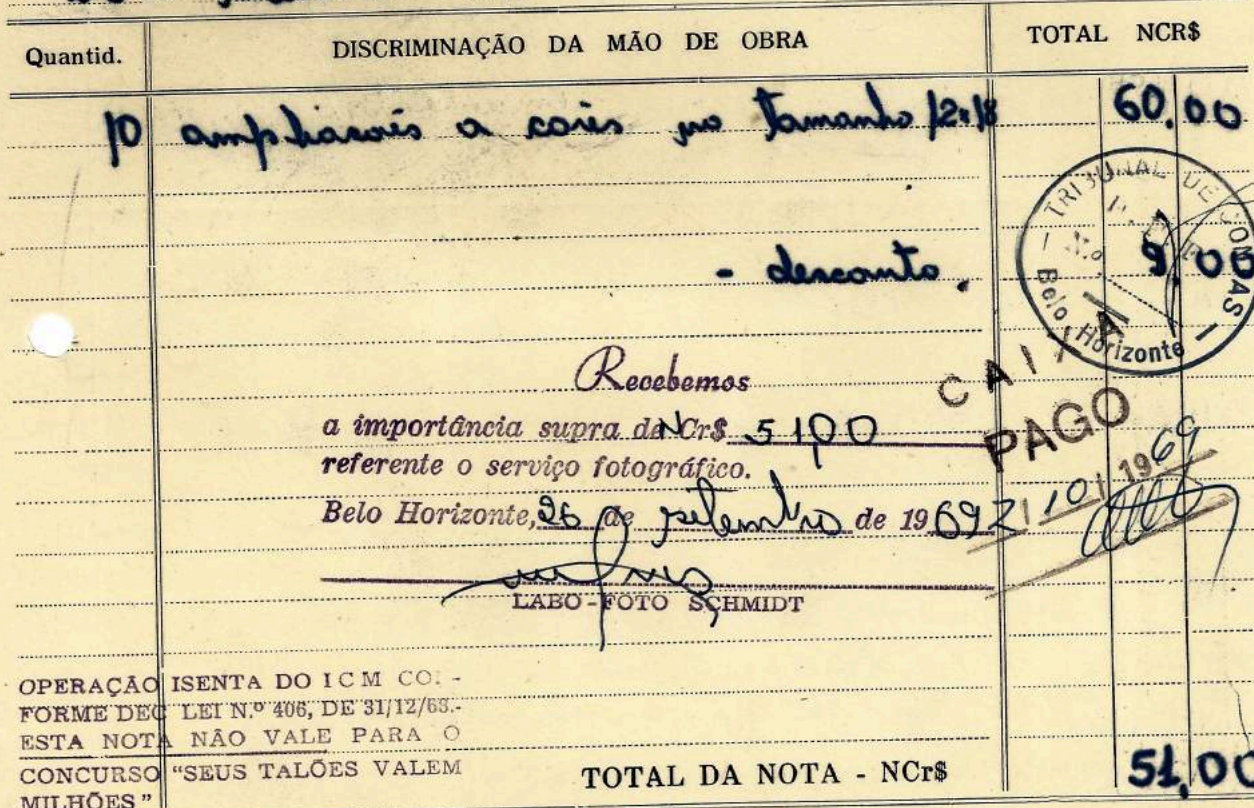 Quantid. DISCRIMINAÇÃO DA MÃO DE OBRA TOTAL NCR$
10 ampliacois a cores no tamanho 12x18 60,00
TRIBUNAL DE CONTAS
Nº
Belo Horizonte
- desconto. 9,00
Recebemos
CAIXA
a importância supra de NCr$ 51,00
PAGO
referente o serviço fotográfico.
Belo Horizonte, 26 de setembro de 1969
2/10/1969
LABO-FOTO SCHMIDT
OPERAÇÃO ISENTA DO ICM CON-
FORME DEC LEI N.º 406, DE 31/12/68.-
ESTA NOTA NÃO VALE PARA O
CONCURSO "SEUS TALÕES VALEM
MILHÕES"
TOTAL DA NOTA - NCr$ 51,00